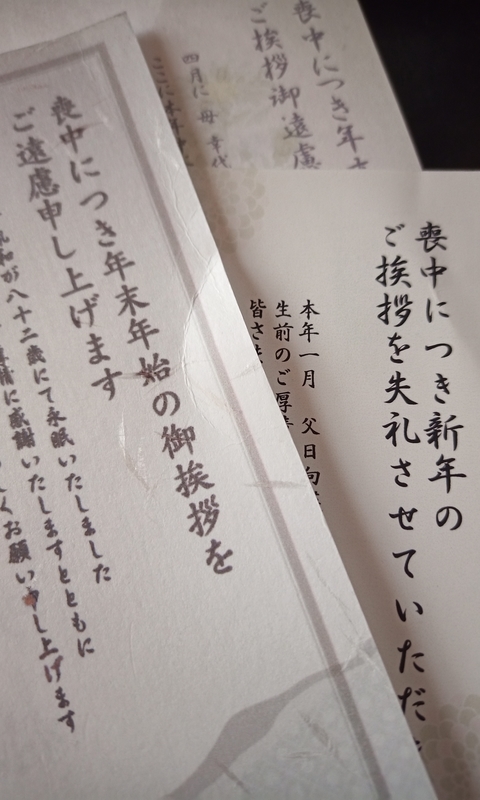 喪中につき年末年始の御挨拶を
ご遠慮申し上げます
が八十二歳にて永眠いたしました
に感謝いたしますとともに
お願い申し上げます
喪中につき年
ご挨拶御遠慮
四月に 母 幸代
喪中につき新年の
ご挨拶を失礼させていただ
本年一月 父 日向
生前のご厚
皆さま